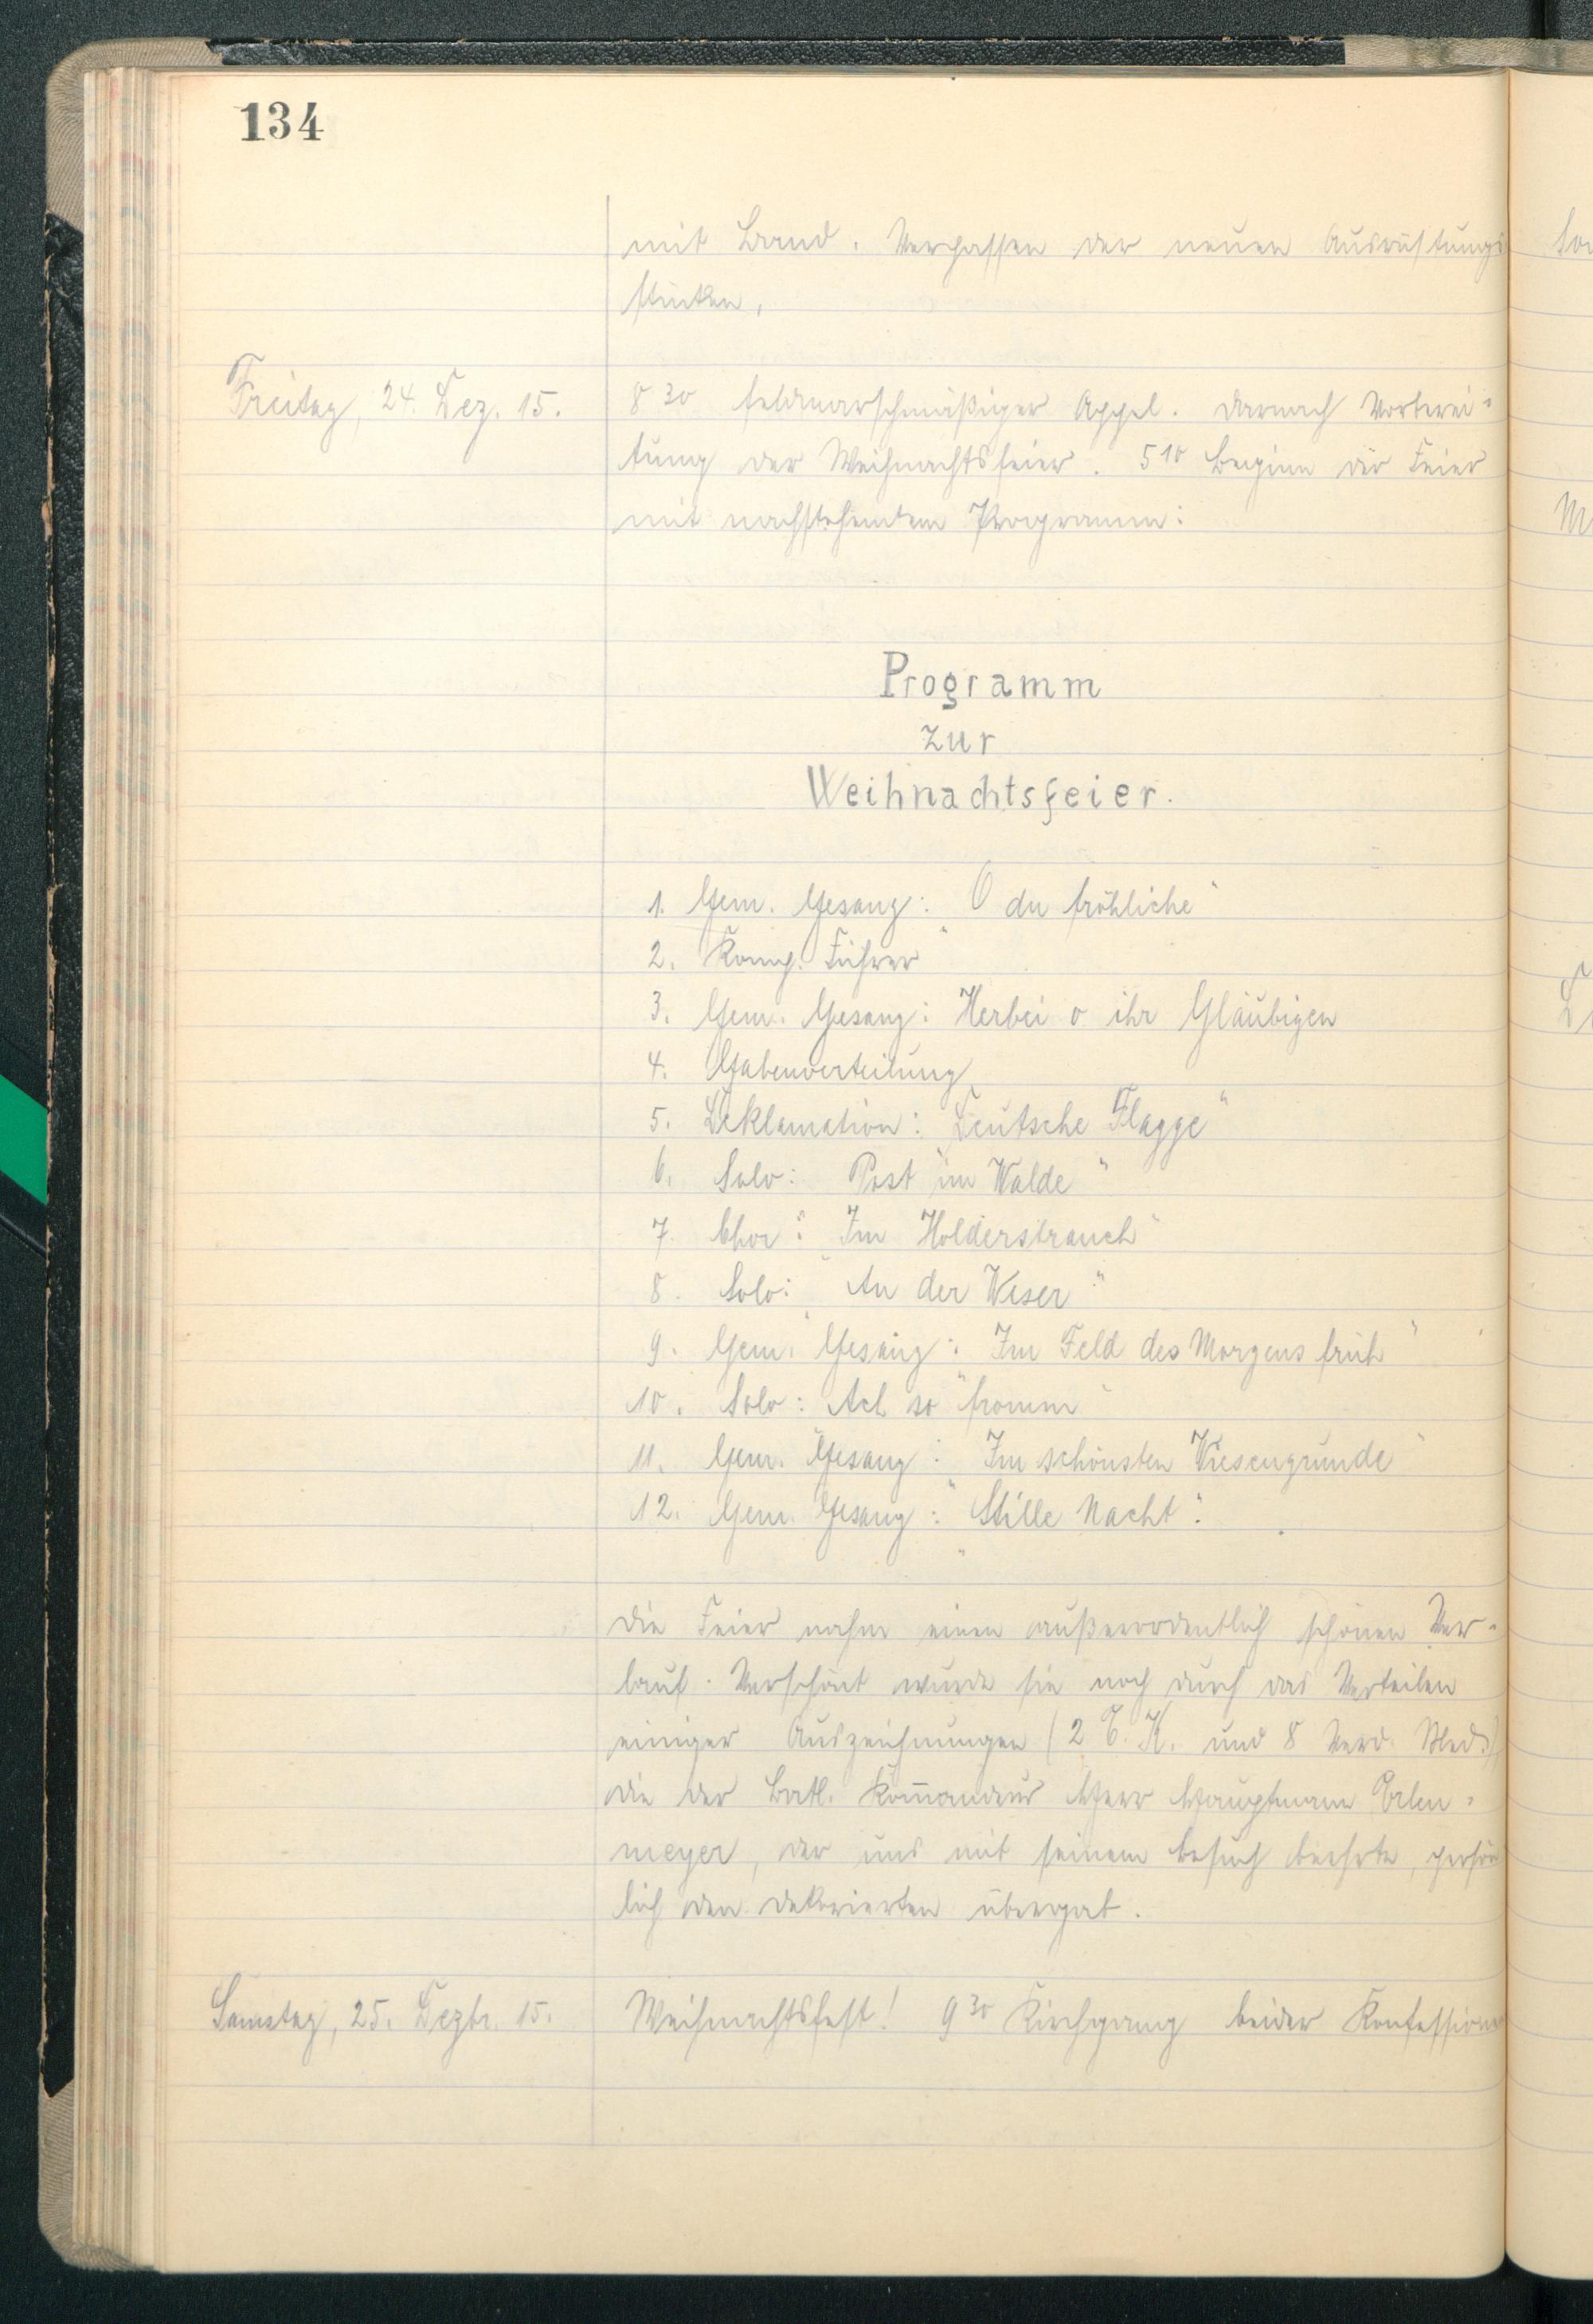 134
mit Band. Verpassen der neuen Ausrüstungs
stücken.
Freitag, 24. Dez. 15.
8 30 feldmarschmäßiger Appel. Darnach Vorberei-
tung der Weihnachtsfeier. 5 10 Beginn der Feier
mit nachstehendem Programm:
Programm
zur
Weihnachtsfeier.
1. Gem. Gesang: „O du fröhliche"
2. Komp. Führer
3. Gem. Gesang: Herbei o ihr Gläubigen
4. Gabenverteilung
5. Deklamation: „Deutsche Flagge"
6. Solo: „Post im Walde"
7. Chor: „Im Holderstrauch"
8. Solo: „An der Weser"
9. Gem. Gesang: „Im Feld des Morgens früh"
10. Solo: „Ach so fromm"
11. Gem. Gesang: „Im schönsten Wiesengrunde"
12. Gem. Gesang: „Stille Nacht".
Die Feier nahm einen außerordentlich schönen Ver-
lauf. Verschönt wurde sie noch durch das Verteilen
einiger Auszeichnungen (2 E. K. und 8 Verd. Med.)
die der Batl. Kom̄andeur Herr Hauptmann Erlen-
meyer, der uns mit seinem Besuch beehrte, persön
lich den Dekorierten übergab.
Samstag, 25. Dezbr. 15.
Weihnachtsfest! 9 30 Kirchgang beider Konfessionen